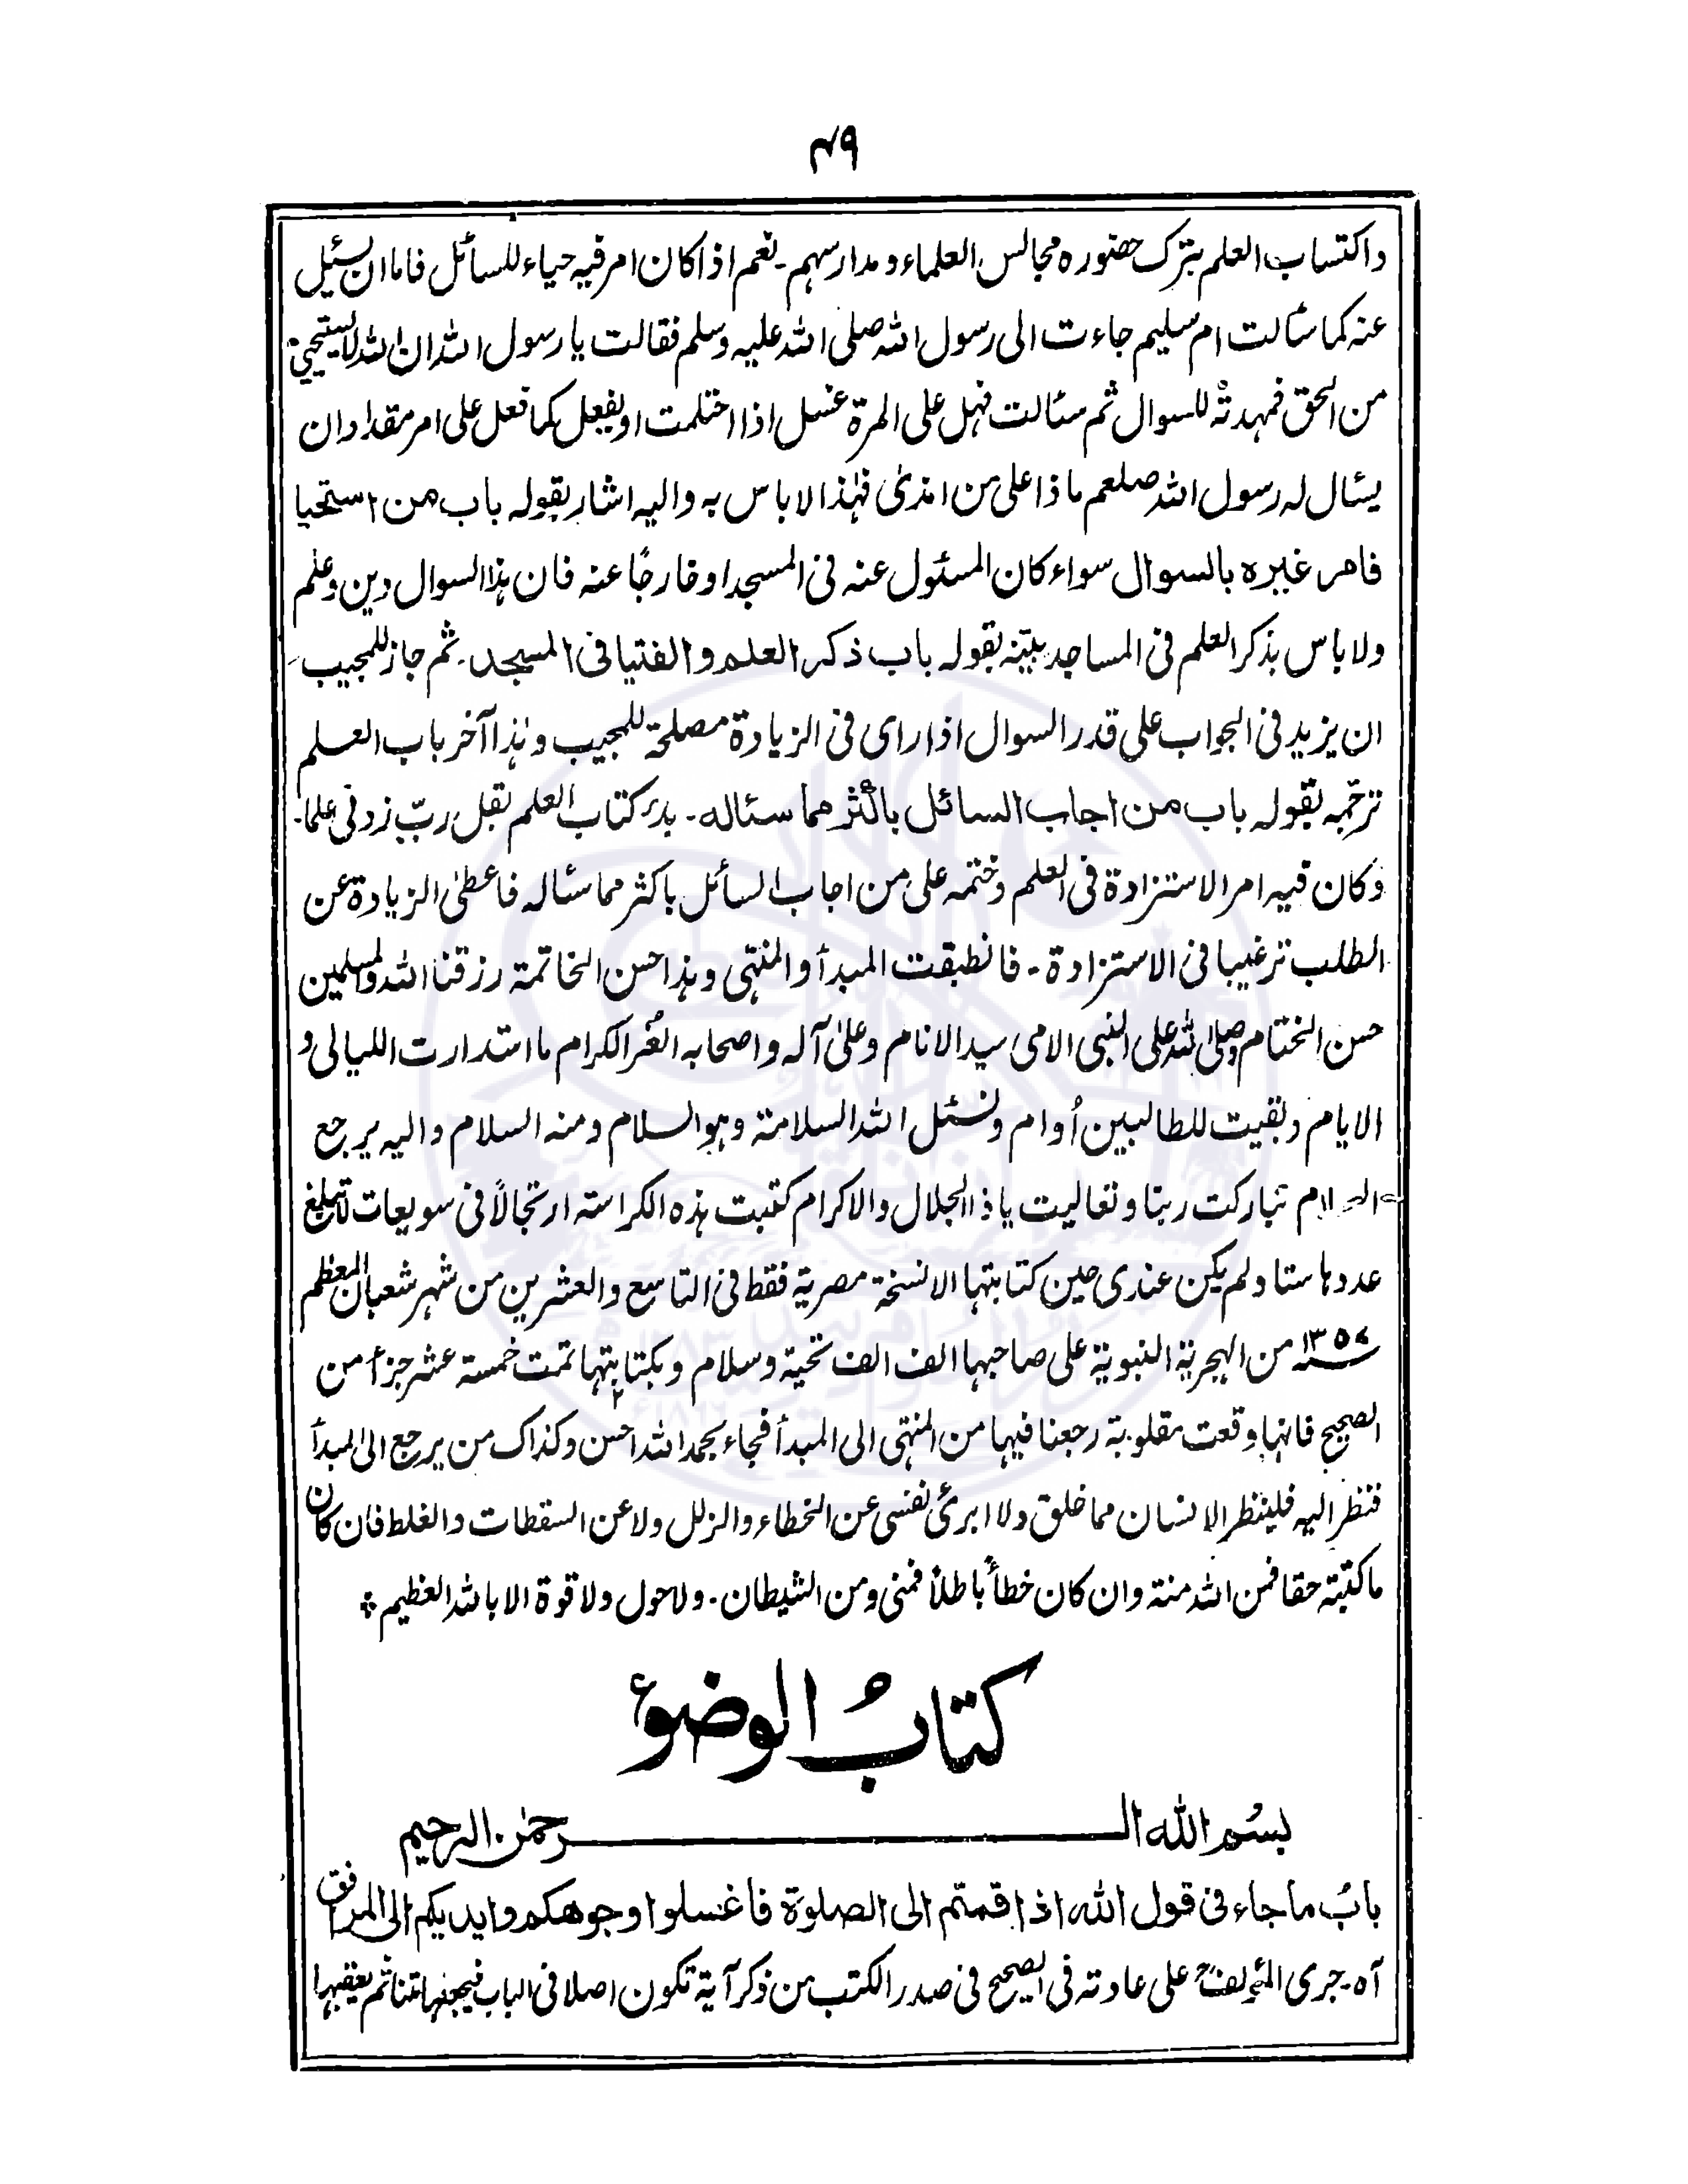 ۴۹
واكتساب العلم بترك حضوره مجالس العلماء ومدارسهم۔ نعم اذا كان امر فيه حياء للسائل فاما ان يسئيل
عنه كما سألت ام سليم جاءت الى رسول الله صلى الله عليه وسلم فقالت يا رسول الله ان الله لا يستحيي
من الحق فمهدته للسوال ثم سئالت فهل على المرة غسل اذا احتلمت او يفعل كما فعل على امر مقداد ان
يسئال له رسول الله صلعم ماذا على من امذىٰ فهٰذا لا باس به واليه اشار بقوله باب من استحيا
فامر غيره بالسوال سواء كان المسئول عنه فى المسجد او خارجًا عنه فان هذا السوال دين وعلم
ولا باس بذكر العلم فى المساجد بيّنه بقوله باب ذكر العلم والفتيا فى المسجد۔ ثم جاز للمجيب
ان يزيد فى الجواب على قدر السوال اذا راى فى الزيادة مصلحة للمجيب وهٰذا آخر باب العلم
ترجّمه بقوله باب من اجاب السائل باكثر مما سئاله۔ بدء كتاب العلم بقل ربّ زدنى علما۔
وكان فيه امر الاستزادة فى العلم وختمه على من اجاب السائل باكثر مما سئاله فاعطىٰ الزيادة عن
الطلب ترغيبا فى الاستزادة۔ فانطبقت المبدأ والمنتهى وهذا حسن الخاتمة رزقنا الله والمسلمين
حسن الختام وصلى الله على النبى الامى سيد الانام وعلىٰ آله واصحابه الغُر الكرام ما استدارت الليالى و
الايام وبقيت للطالبين أوام ونسئل الله السلامة وهو السلام ومنه السلام واليه يرجع
السلام تباركت ربنا وتعاليت ياذا الجلال والاكرام كتبت هذه الكراسته ارتجالًا فى سويعات لاتبلغ
عددها ستا ولم يكن عندى حين كتابتها الا نسخة مصرية فقط فى التاسع والعشرين من شهر شعبان المعظم
سنه ۱۳۵۷ من الهجرية النبوية على صاحبها الف الف تحية وسلام وبكتابتها تمت خمسة عشر جزأ من
الصحيح فانها وقعت مقلوبة رجعنا فيها من المنتهى الى المبدأ فجاء بحمد الله احسن وكذاك من يرجع الىٰ المبدأ
فنظر اليه فلينظر الانسان مما خلق ولا ابرئ نفسى عن الخطاء والزلل ولا عن السقطات والغلط فان كان
ما كتبته حقا فمن الله منته وان كان خطأً باطلاً فمنى ومن الشيطان۔ ولا حول ولا قوة الا بالله العظيم
كتابُ الوضوء
بسم الله الرحمٰن الرحيم
بابُ ما جاء فى قول الله اذا قمتم الى الصلوة فاغسلوا وجوهكم وايديكم الى المرافق
آه۔ جرى المؤلفؒ على عادته فى الصحيح فى صدر الكتب من ذكر آية تكون اصلا فى الباب فيجعلها متنا ثم يعقبها